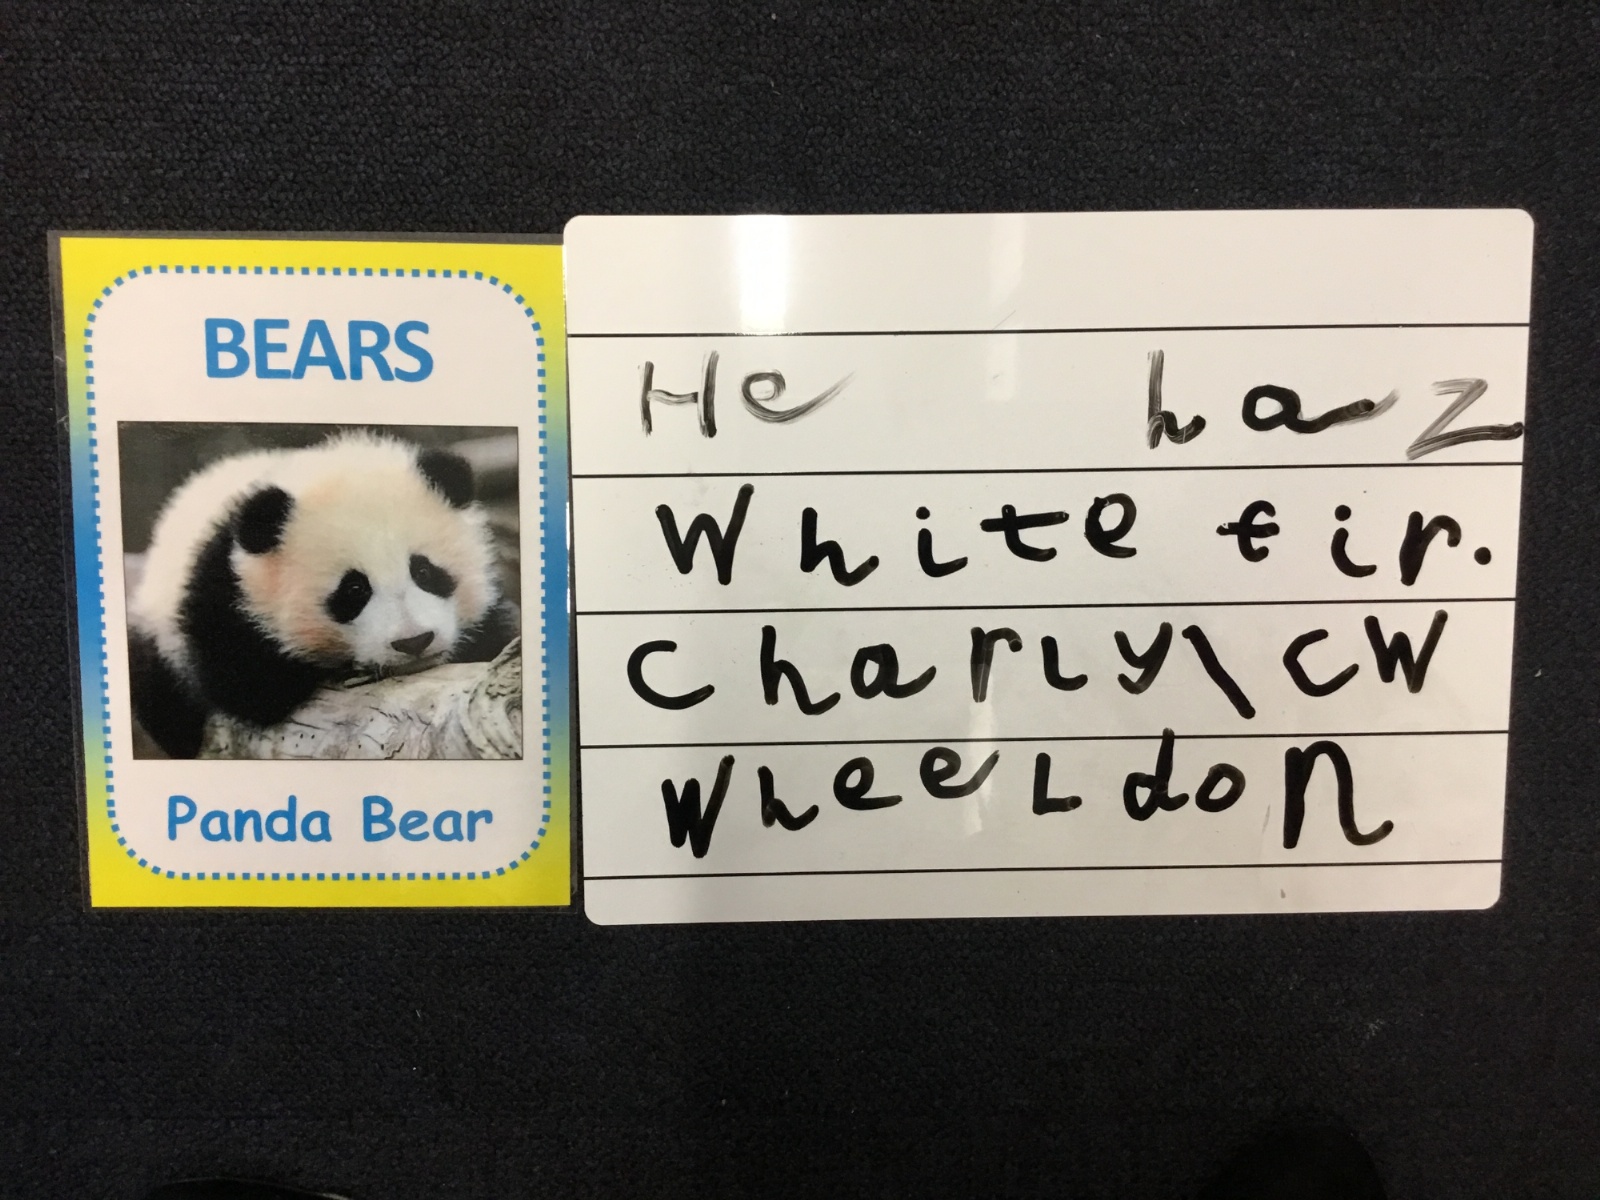 BEARS
Panda Bear
He haz
White fir.
CharLy\CW
WheeLdon